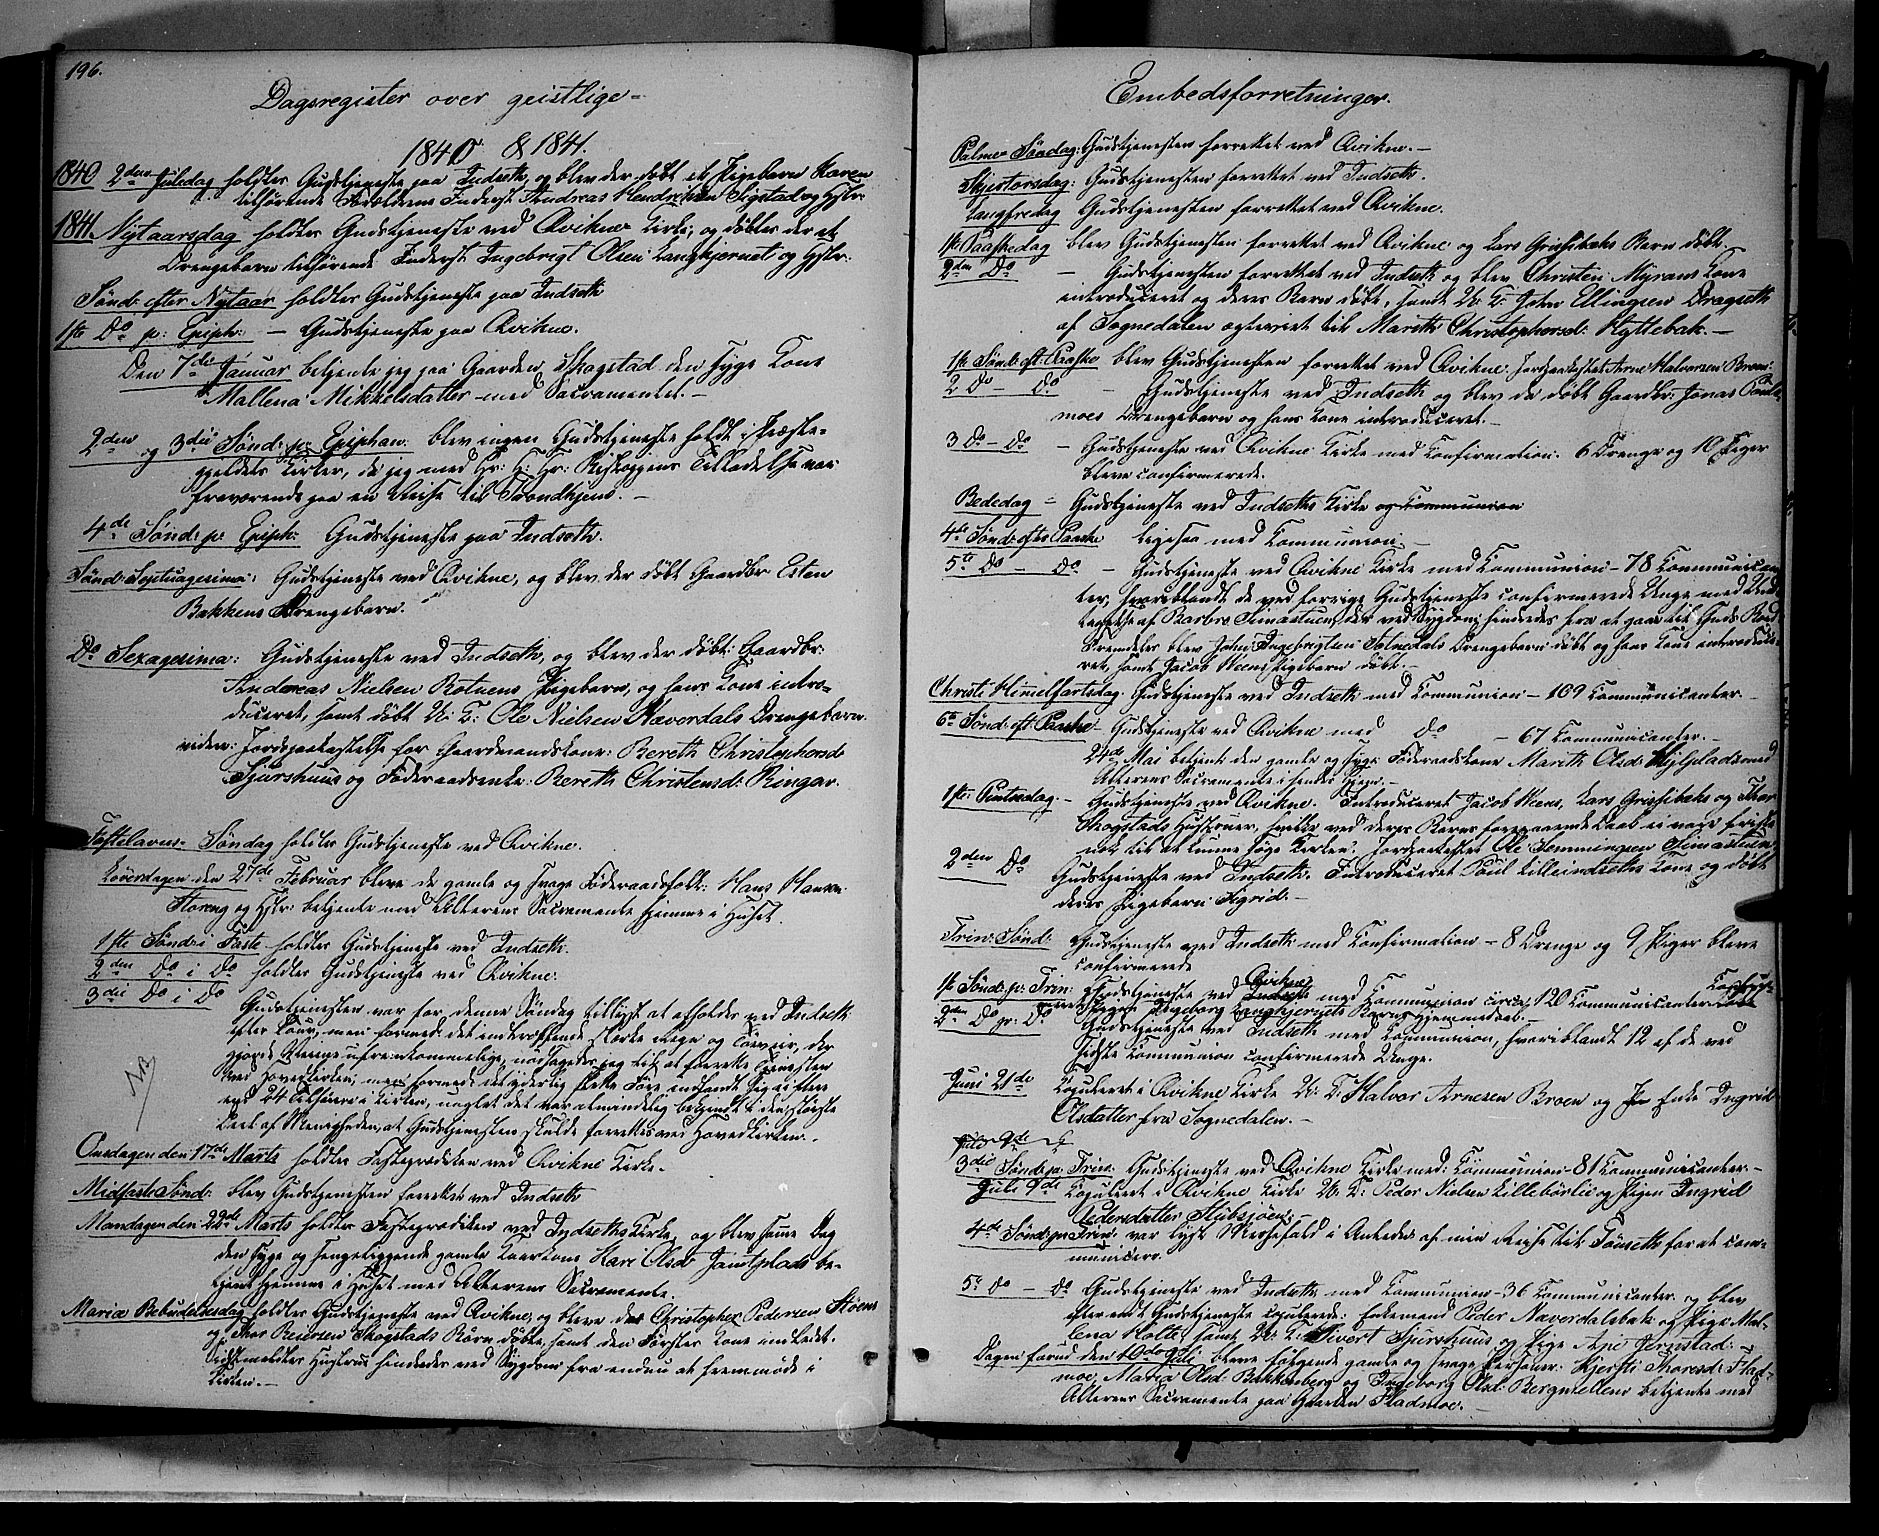 196.
Dagsregister over geistlige-
1840 & 1841.
1840 2den Juledag holdtes Gudstjeneste paa Indseth, og blev der døbt et Pigebarn Karen
tilhørende Inderst Andreas Hendriksen Sigstad og Hstr.
1841. Nytaarsdag holdtes Gudstjeneste ved Qvikne Kirke, og døbtes der et
Drengebarn tilhørende Inderst Ingebrigt Olsen Langkjernet og Hstr:
Sønd: efter Nytaar holdtes Gudstjeneste paa Indseth
1ste Do p: Epiph: – Gudstjeneste paa Qvikne.
Den 7de Januar betjente jeg paa Gaarden Skogstad den syge Kone
Mallena Mikkelsdatter med Sacramentet. –
2den og 3die Sønd: p: Epiphan: blev ingen Gudstjeneste holdt i Præste-
gjeldets Kirker, da jeg med Hr: Tilladelse var
fraværende paa en Reise til Trondhjem. –
4de Sønd: p: Epiph: Gudstjeneste paa Indseth.
Sønd: Septuagesima: Gudstjeneste ved Qvikne, og blev der døbt Gaardbr Esten
Bakkens Drengebarn.
Do Sexagesima: Gudstjeneste ved Indseth, og blev der døbt: Gaardbr:
Andreas Nielsen Rotnens Pigebarn, og hans Kone intro-
duceret, samt døbt U: K: Ole Nielsen Næverdals Drengebarn.
viden: Jordpaakastelse for Gaardmandskone: Bereth Christophersd:
Sjurshuus og Føderaadsenke: Bereth Christensd: Ringar.
Fastelavns- Søndag holdtes Gudstjeneste ved Qvikne.
Løverdagen den 27de Februar bleve de gamle og svage Føderaadsfolk: Hans Hansen
Floreng og Hstr: betjente med Alterens Sacramente hjemme i Huset.
1ste Sønd: i Faste holdtes Gudstjeneste ved Indseth.
2den Do i Do holdtes Gudstjeneste ved Qvikne.
3die Do i Do
Gudstjenesten var for denne Søndag tillyst at afholdes ved Indseth
efter Tour, men formedelst indtreffende stærke Regn og Tøeveir, der
gjorde Veiene ufremkommelige, nødsagedes jeg til at forrette Tjenesten
ved Hovedkirken, men formedelst det yderlig slette Føre indfandt sig ei flere
end 24 Tilhørere i Kirken, uagtet det var almindelig bekjendt i den største
Deel af Menigheden, at Gudstjenesten skulde forrettes ved Hovedkirken. –
NB
Onsdagen den 17de Marts holdtes Fasteprædiken ved Qvikne Kirke. –
Midfaste Sønd: blev Gudstjenesten forrettet ved Indseth
Mandagen den 22de Marts holdtes Fasteprædiken ved Indseths Kirke, og blev samme Dag
den syge og sengeliggende gamle Kone Kari Olsd: Jamtplads be-
tjent hjemme i Huset med Alterens Sacramente.
Mariæ Bebudelsesdag holdtes Gudstjeneste ved Qvikne, og bleve der Christopher Pedersen Støens
og Thor Reiersen Skogstads Børn døbte, samt den Førstes Kone indledet.
Sidstmeldtes Hustrue hindredes ved Sygdom fra endnu at fremmøde i
Kirken. –
Embedsforretninger.
Palme Søndag: Gudstjenesten forrettet ved Qvikne. –
Skjertorsdag: Gudstjenesten forrettet ved Indseth.
Langfredag Gudstjenesten forrettet ved Qvikne.
1ste Paaskedag blev Gudstjenesten forrettet ved Qvikne og Lars Grissibaks Barn døbt.
2den Do – Gudstjenesten forrettet ved Indseth og blev Christen Myrans Kone
introduceret og deres Barn døbt, samt U: K: John Ellingsen Dragseth
af Sognedalen egteviet til Marith Christophersd: Hyttebak. –
1ste Sønd: eft: Paaske blev Gudstjenesten forrettet ved Qvikne. Jordpaakastet Arne Halvorsen Broen:
2 Do – Do – Gudstjeneste ved Indseth og blev da døbt Gaardbr: Jonas
moes Drengebarn og hans Kone introduceret. –
3 Do – Do – Gudstjeneste ved Qvikne Kirke med Confirmation: 6 Drenge og 10 Piger
bleve confirmerede.
Bededag – Gudstjeneste ved Indseths Kirke og Communion
4de Sønd: efter Paaske ligesaa med Communion.
5te Do – Do – Gudstjeneste ved Qvikne Kirke med Communion – 78 Communican-
ter, hvoriblandt de ved forrige Gudstjeneste confirmerede Unge med Und-
tagelse af Barbro Simastuen, der ved Sygdom hindredes fra at gaae til Guds Bord.
Fremdeles blev John Ingebrigtsen Tolnedals Drengebarn døbt og hans Kone introduce-
ret, samt Jacob Veens Pigebarn døbt. –
Christi Himmelfartsdag. Gudstjeneste ved Indseth med Communion – 109 Communicanter –
6te Sønd: eft: Paaske – Gudstjeneste ved Qvikne med Do – 67 Communicanter. –
24de Mai betjent den gamle og syge Føderaadskone Marith Olsd: Hylplads med
Alterens Sacramente i hendes Hjem. –
1ste Pintsedag. – Gudstjeneste ved Qvikne. Introduceret Jacob Veens, Lars Grissibaks og Thor
Skogstads Hustruer, hvilke ved deres Børns foregaaende Daab ei vare friske
nok til at kunne søge Kirken. Jordpaakastet Ole Semmingsen Simastuen.
2den Do Gudstjeneste ved Indseth. Introduceret Poul Lilleindseths Kone og døbt
deres Pigebarn: Sigrid. –
Trin: Sønd: Gudstjeneste ved Indseth med Confirmation – 8 Drenge og 9 Piger bleve
confirmerede
1ste Sønd: p: Trin: Gudstjeneste ved Indseth Qvikne med Communion circa 120 Communicanter.
Pigen Ingeborg Langkjernets Barns Hjemmedaab. –
2den Do p: Do Gudstjeneste ved Indseth med Communion, hvoriblandt 12 af de ved
sidste Communion confirmerede Unge.
Juni 21de Copuleret i Qvikne Kirke U: K: Halvor Arnesen Broen og Enke Ingrid
Olsdatter fra Sognedalen. –
Juli 9de
3die Sønd: p: Trin: Gudstjeneste ved Qvikne Kirke med: Communion – 81 Communicanter. –
Juli 9de Copuleret i Qvikne Kirke U: K: Peder Nielsen Lillebørlie og Pigen Ingrid
Pedersdatter Stubsjøen. –
4de Sønd: p: Trin: var lyst Messefald i Anledning af min Reise til Tønseth for at com-
municere.
5te Do – Do Gudstjeneste ved Indseth med Communion – 36 Communicanter og blev
efter endt Gudstjeneste copulerede: Enkemand Peder Næverdalsbak og Pige Mal-
lena Holte, samt U: K: Sivert Sjurshuus og Pige Ane Jernstad.
Dagen forud den 10de Juli bleve følgende gamle og svage Personer: Kjersti Thoresd: Flad-
moe, Maria Olsd: Bakkenberg og Ingeborg Olsd: Bergmellem betjente med
Alterens Sacramente paa Gaarden Fladmoe. –